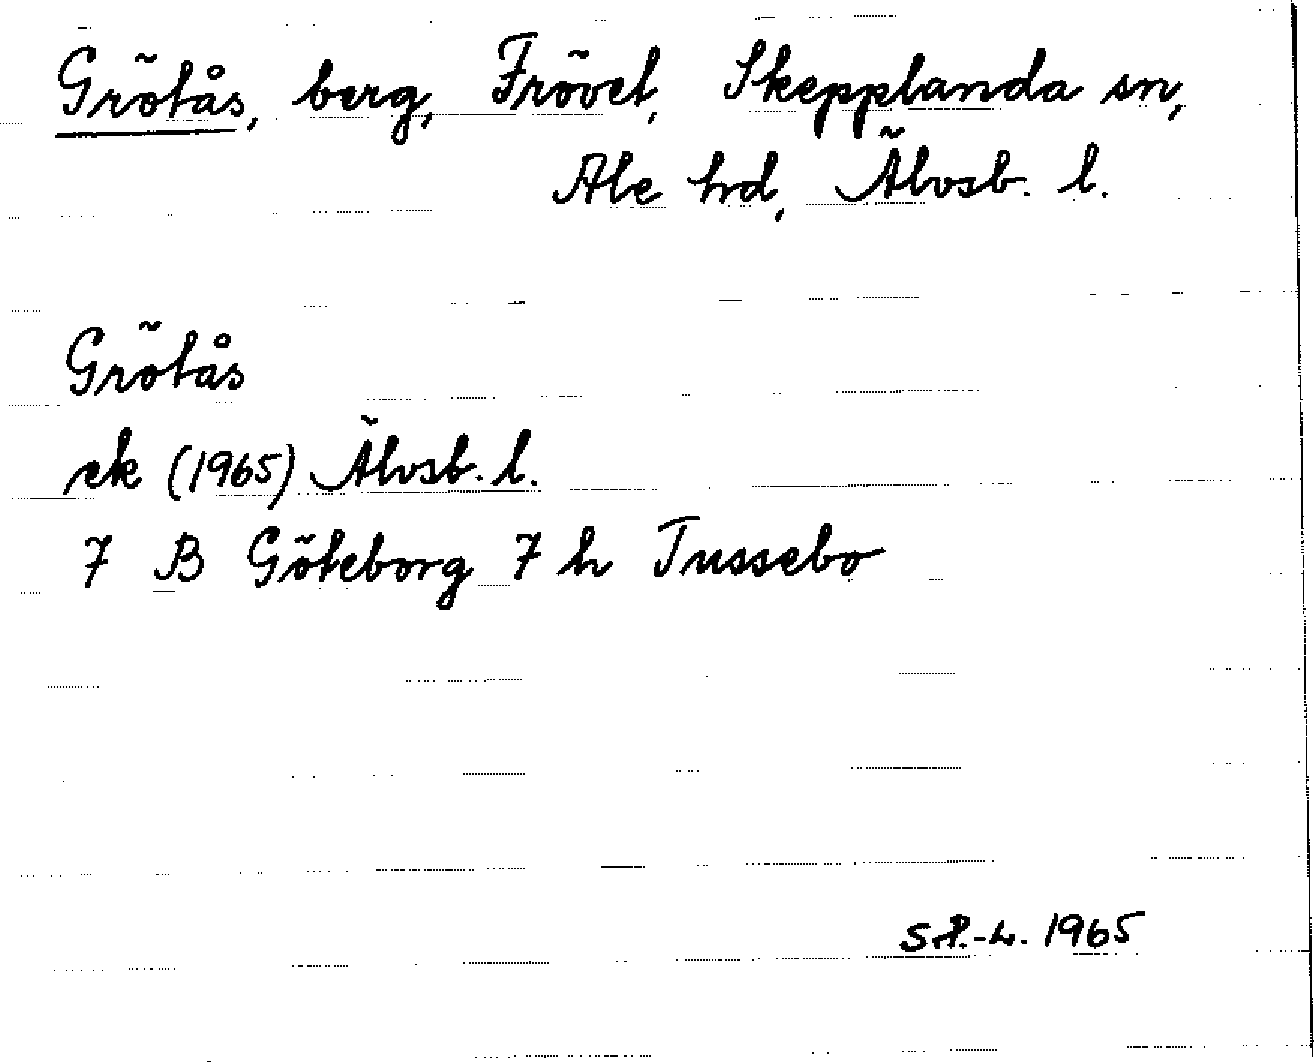 Grötås, berg, Frövet, Skepplanda sn,
Ale hd, Älvsb. l.
Grötås
ek (1965) Älvsb. l.
7 B Göteborg 7 h Tussebo
1965